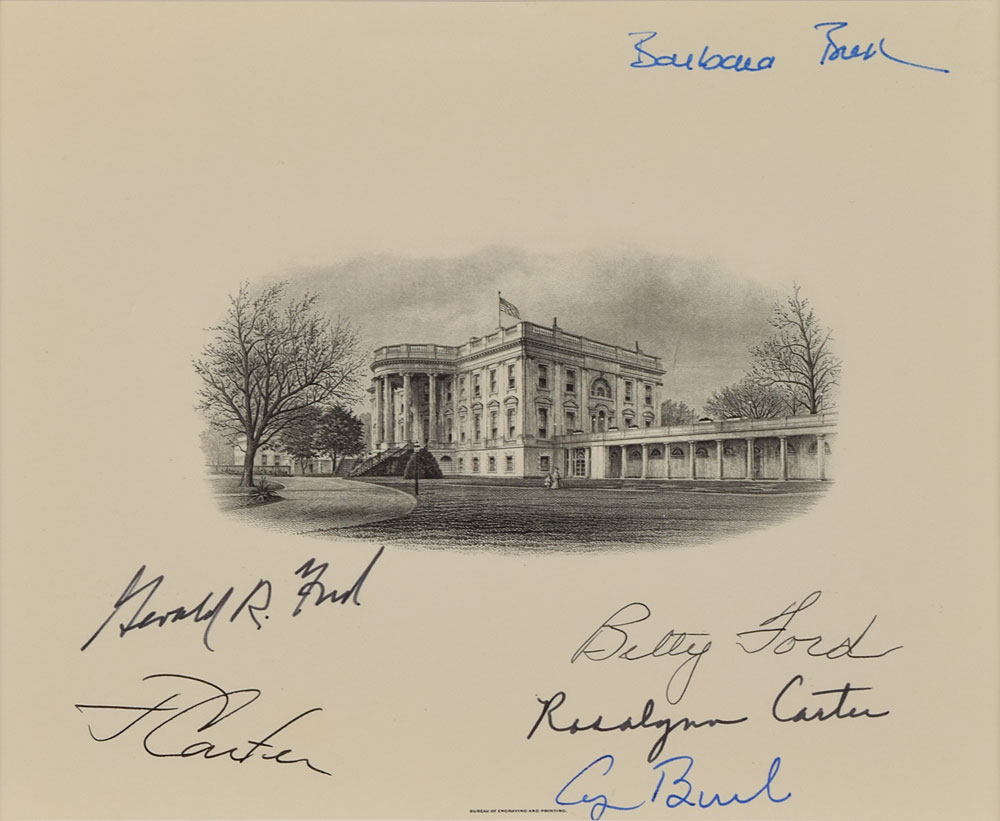 Barbara Bush
Gerald R. Ford
Betty Ford
J Carter
Rosalynn Carter
G Bush
BUREAU OF ENGRAVING AND PRINTING.